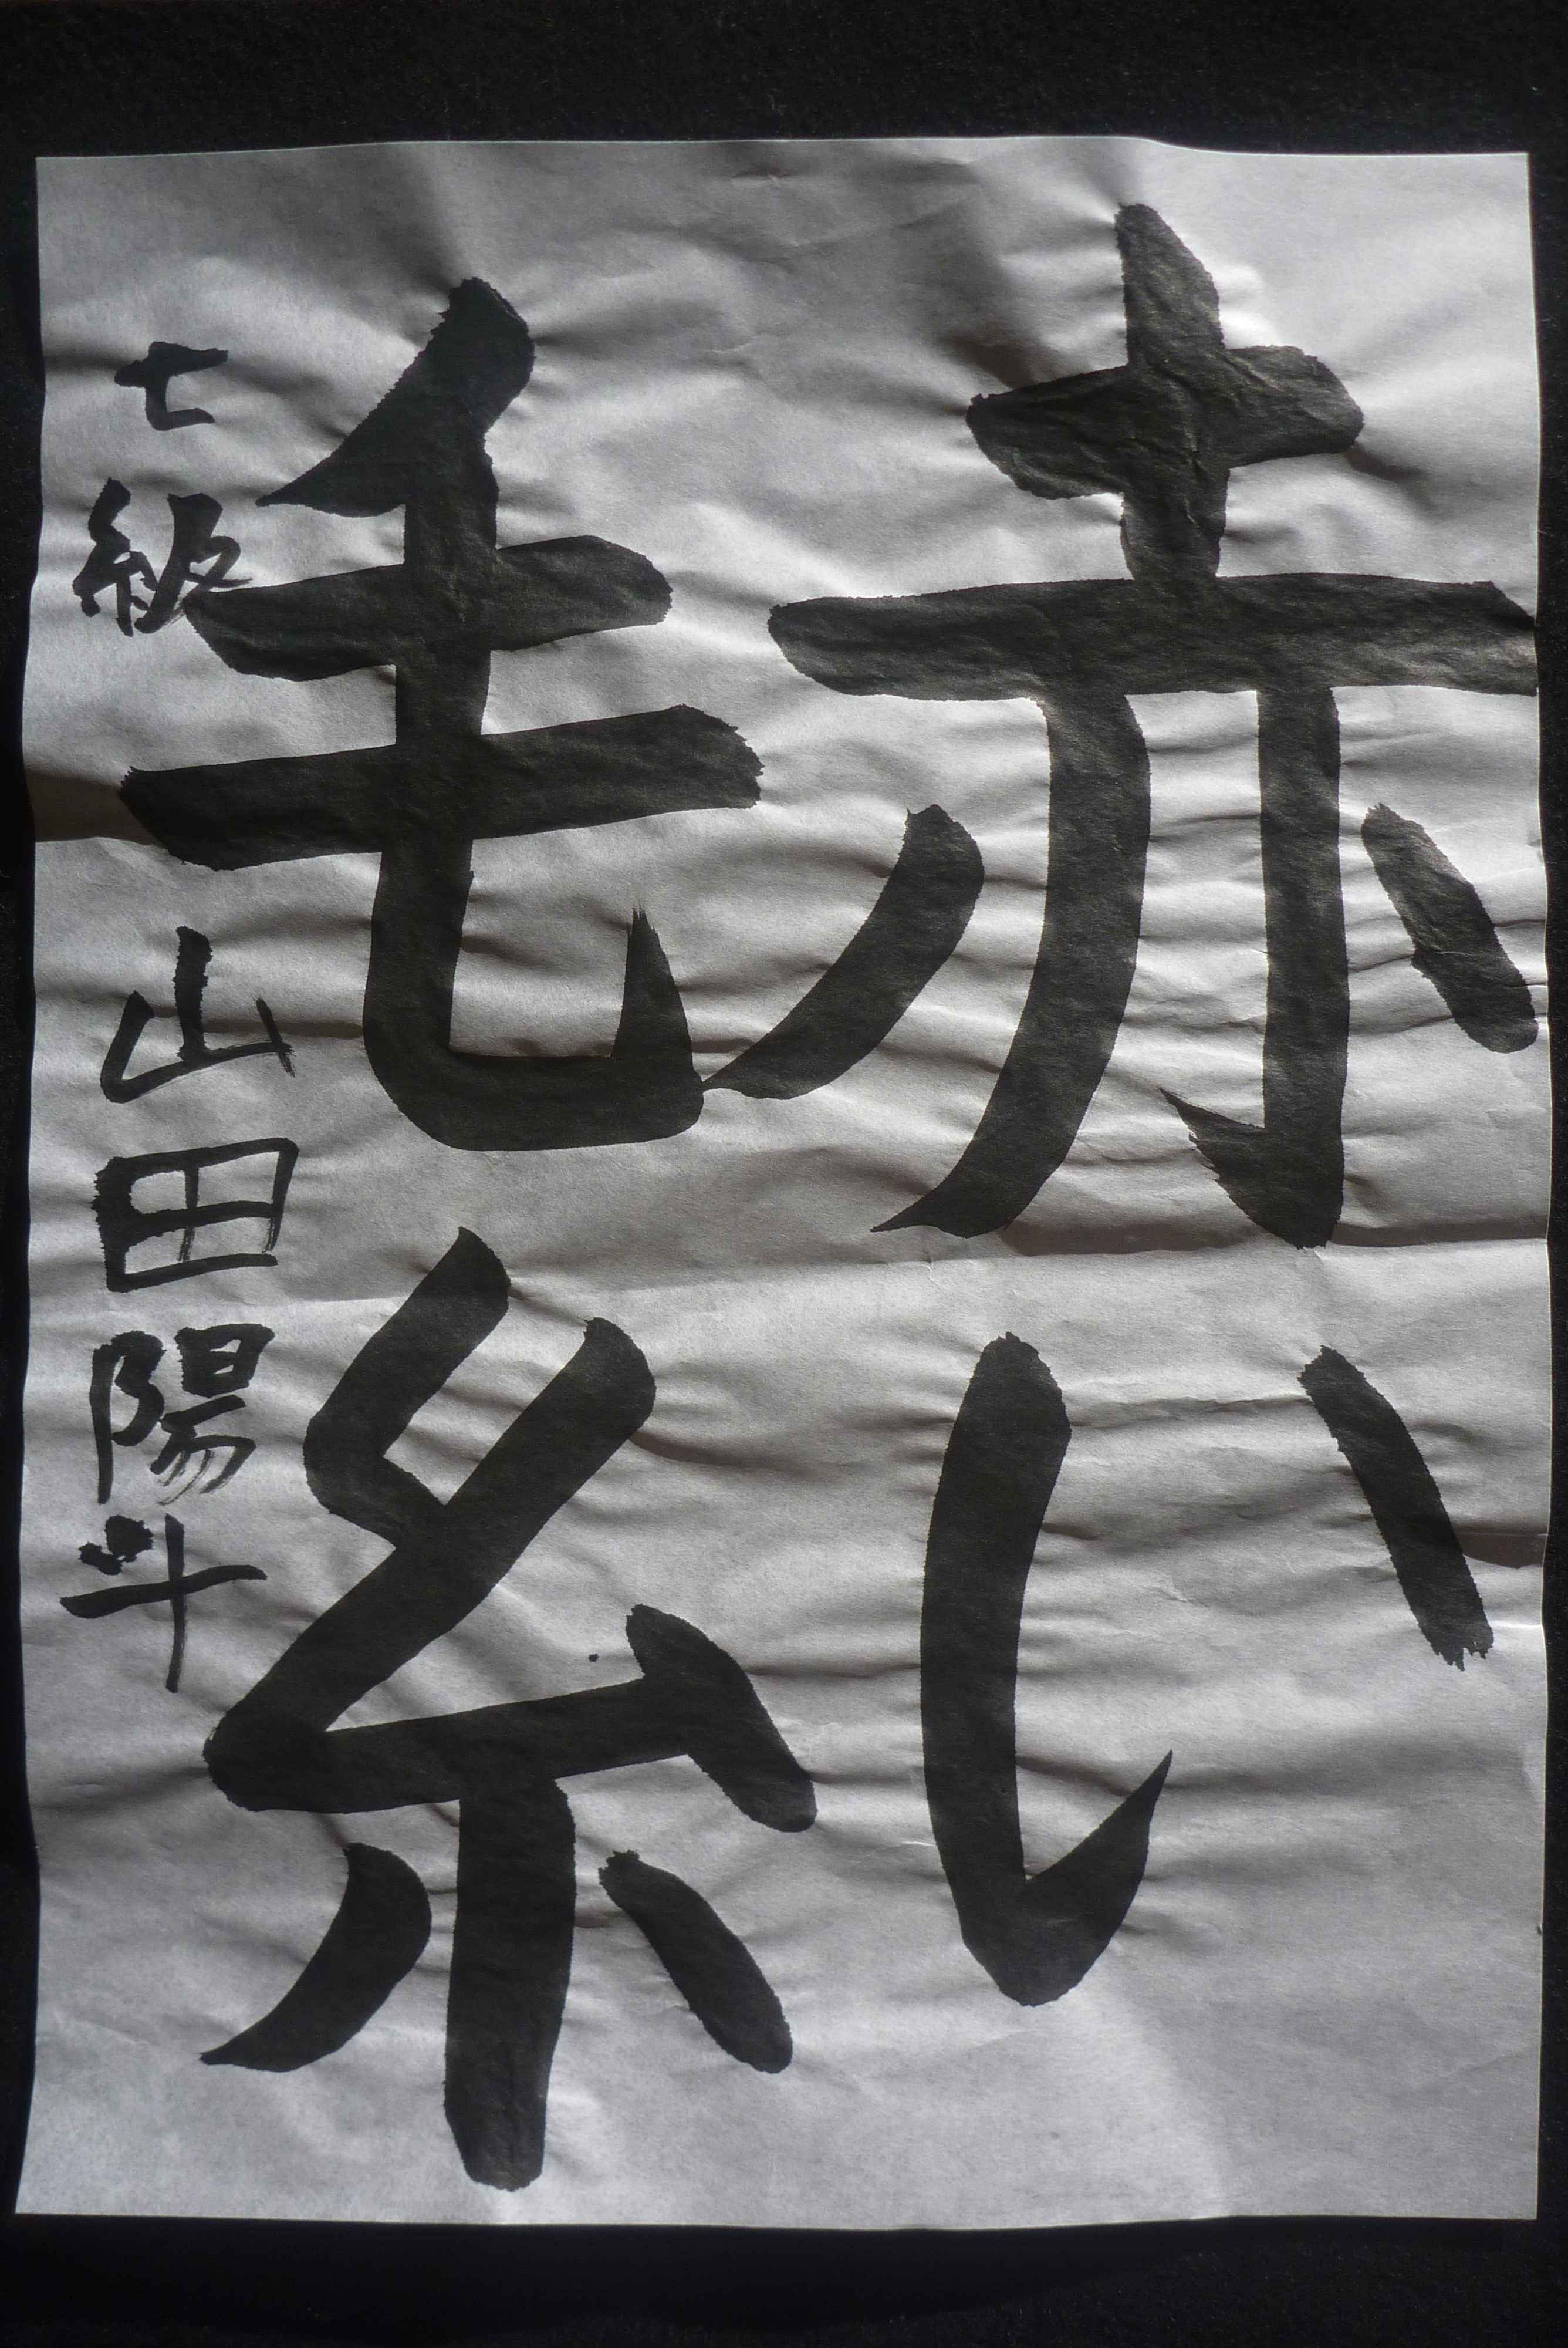 赤い
毛糸
七級 山田陽斗